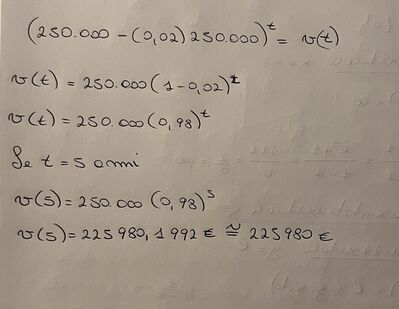 (250.000 – (0,02) 250.000)^t = v(t)
v(t) = 250.000 (1 – 0,02)^t
v(t) = 250.000 (0,98)^t
Se t = 5 anni
v(5) = 250.000 (0,98)^5
v(5) = 225 980,1992 € ≅ 225 980 €